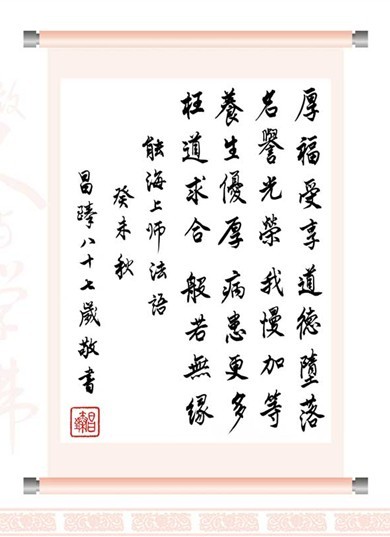 厚福受享 道德墮落
名譽光榮 我慢加等
養生優厚 病患更多
枉道求合 般若無緣
能海上師法語
癸未秋
昌臻八十七歲敬書